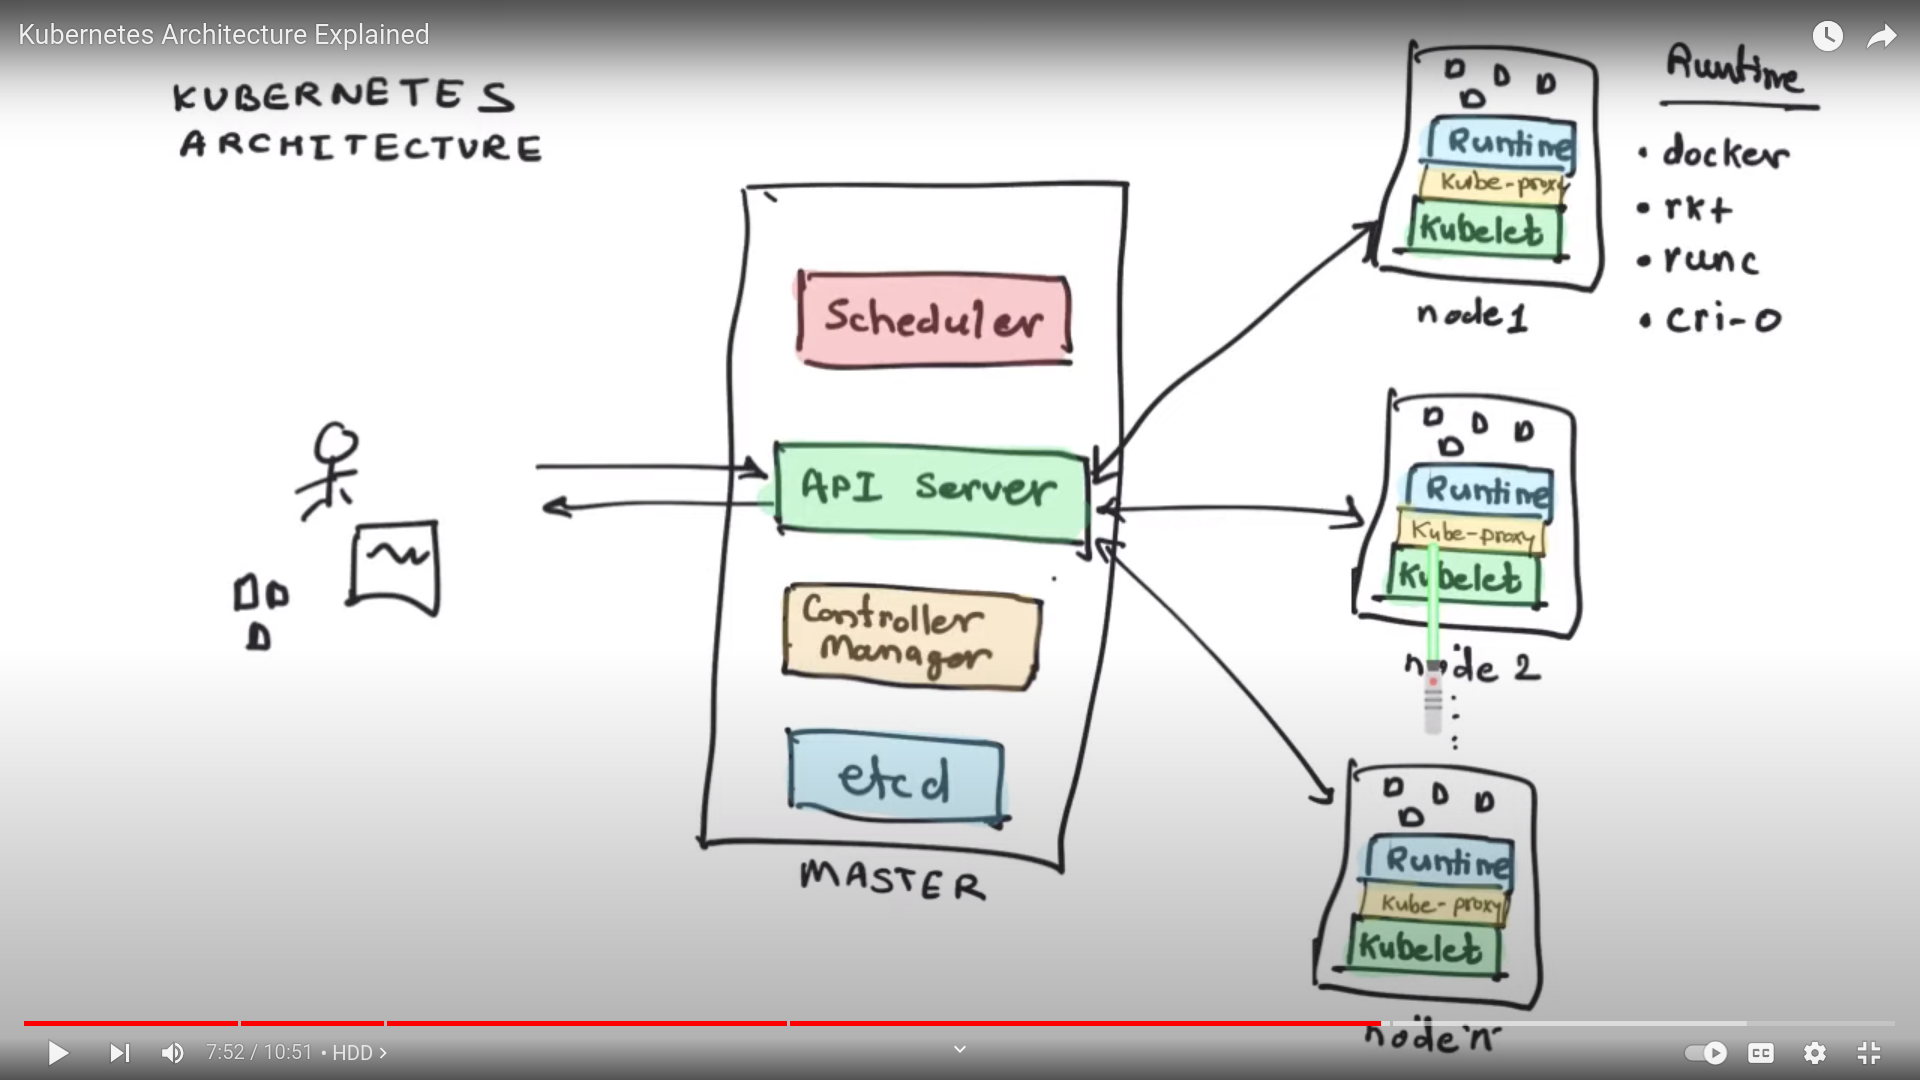 Kubernetes Architecture Explained
KUBERNETES
ARCHITECTURE
Scheduler
API Server
Controller
Manager
etcd
MASTER
Runtime
Kube-proxy
Kubelet
node1
Runtime
• docker
• rkt
• runc
• cri-o
Runtime
Kube-proxy
Kubelet
node 2
Runtime
Kube-proxy
Kubelet
node n
7:52 / 10:51 • HDD >
CC